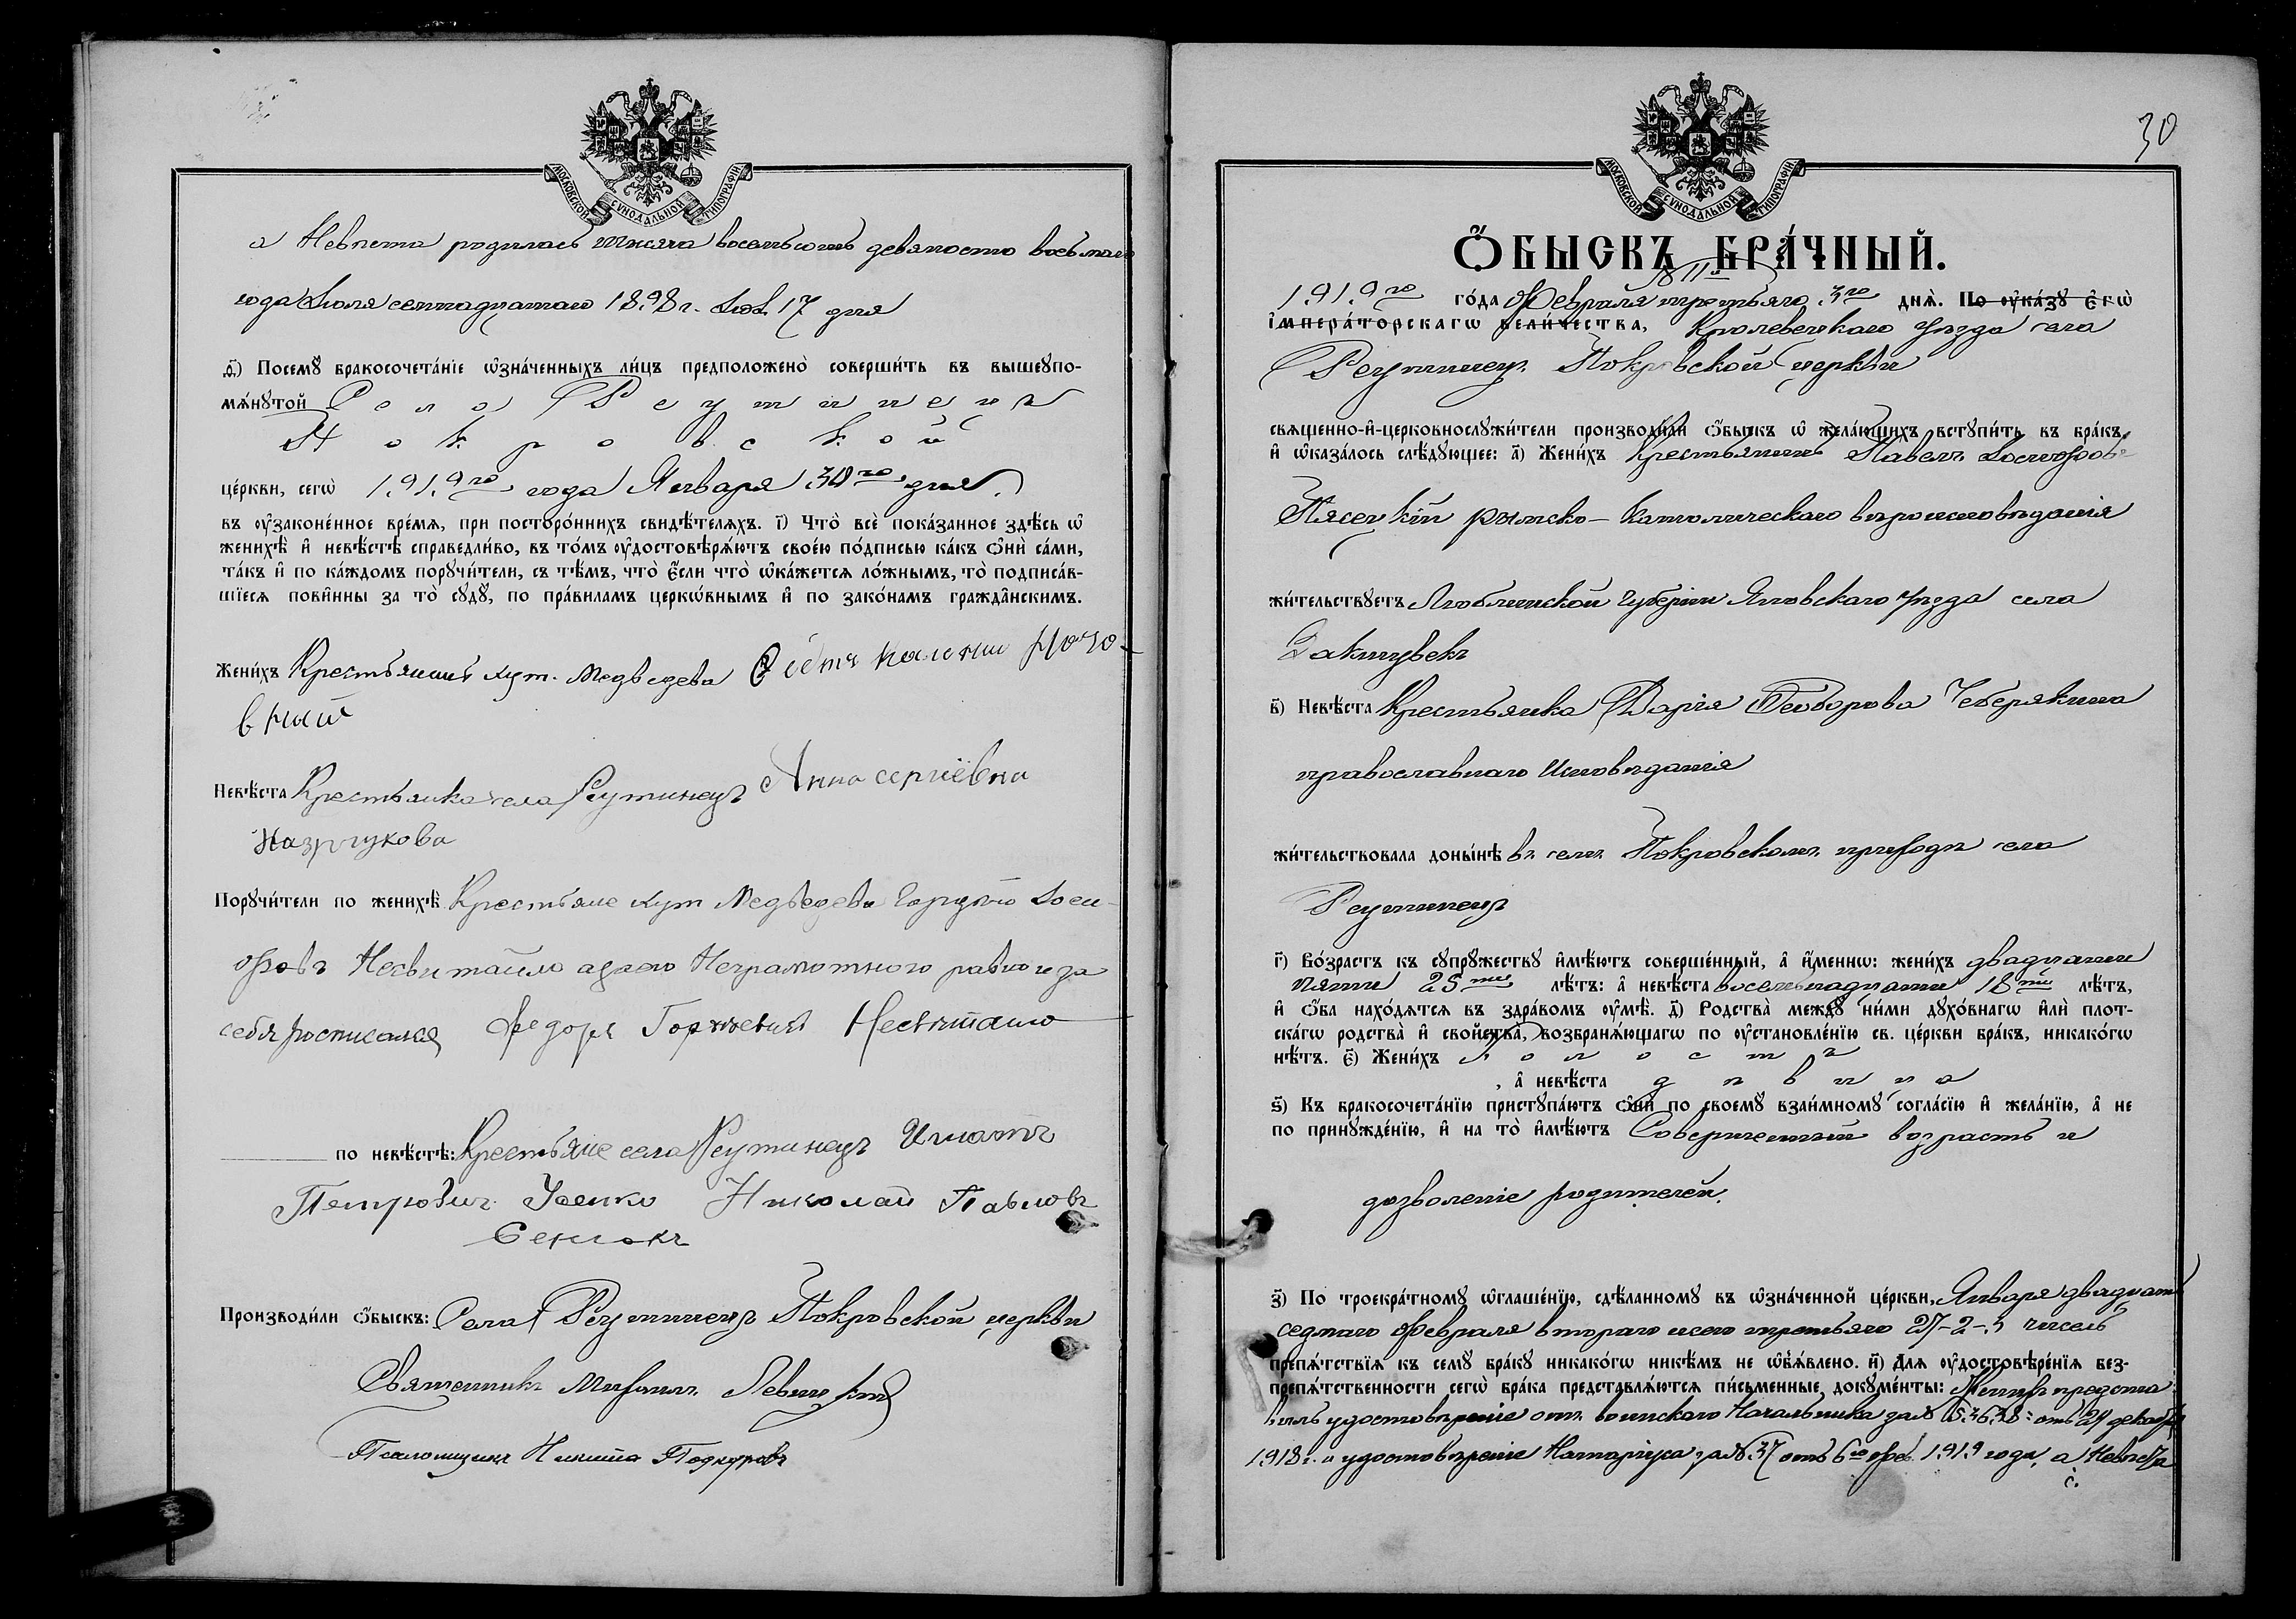 МОСКОВСКОЙ СѴНОДАЛЬНОЙ ТИПОГРАФІИ
а Невѣста родилась тысяча восемьсотъ девяносто восьмаго
года Іюля семнадцатаго 1898 г. Іюл. 17 дня
д҃) Посемꙋ̀ бракосочета́нїе ѡ҆зна́ченныхъ ли́цъ предположено̀ соверши́ть въ вышеꙋпо-
мѧ́нꙋтой Села Реутинецъ
Покровской
це́ркви, сегѡ̀ 1919го года Января 30го дня.
въ ᲂу҆законе́нное вре́мѧ, при посторо́ннихъ свидѣ́телѧхъ. і҃) Что̀ всѐ пока́занное здѣ́сь ѡ҆
женихѣ̀ и҆ невѣ́стѣ справедли́во, въ то́мъ ᲂу҆достовѣрѧ́ютъ свое́ю по́дписью ка́къ ѻ҆нѝ са́ми,
та́къ и҆ по ка́ждомъ порꙋчи́тели, съ тѣ́мъ, что̀ є҆́сли что̀ ѡ҆ка́жетсѧ ло́жнымъ, то̀ подписа́в-
шїесѧ пови́нны за то̀ сꙋдꙋ̀, по пра́виламъ церкѡ́внымъ и҆ по зако́намъ гражда́нскимъ.
Жени́хъ Крестьянинъ хут. Медведева
Невѣ́ста Крестьянка села Реутинецъ Анна сергіевна
Порꙋчи́тели по женихѣ̀ Крестьяне хут Медведева Гордѣй Іоси-
фовъ Несвитайло а за его Неграмотного равно и за
себя росписался Федоръ Гордіевичъ Несвитайло
по невѣ́стѣ: Крестьяне села Реутинецъ Игнатъ
Петровичъ Усенко Николай Павловъ
Сенюкъ
Производи́ли ѻ҆́быскъ: Села Реутинецъ Покровской церкви
Священникъ Михаилъ Левицкій
Псаломщикъ Никита
30
МОСКОВСКОЙ СѴНОДАЛЬНОЙ ТИПОГРАФІИ
Ѻ҆́БЫСКЪ БРА́ЧНЫЙ.
1919го го́да Февраля третьяго 3го днѧ̀. По ᲂу҆ка́зꙋ є҆гѡ̀
і҆мпера́торскагѡ вели́чества, Кролевецкаго уѣзда села
Реутинецъ Покровской церкви
свѧщенно-и҆-церковнослꙋжи́тели производи́ли ѻ҆́быскъ ѡ҆ жела́ющихъ встꙋпи́ть въ бра́къ,
и҆ ѡ҆каза́лось слѣ́дꙋющее: а҃) Жени́хъ Крестьянинъ Павелъ Іосифовъ
Пясецкій римско-католическаго вѣроисповѣданія
жи́тельствꙋетъ Люблинской губерніи Яновскаго уѣзда села
в҃) Невѣ́ста Крестьянка Дарія Ѳеодорова Чеберякина
православнаго Исповѣданія
жи́тельствовала доны́нѣ въ семъ Покровскомъ приходѣ села
Реутинецъ
г҃) Во́зрастъ къ сꙋпрꙋ́жествꙋ и҆мѣ́ютъ соверше́нный, а҆ и҆́меннѡ: жени́хъ двадцати
пяти 25ти лѣ́тъ: а҆ невѣ́ста восемьнадцати 18ти лѣ́тъ,
и҆ ѻ҆́ба нахо́дѧтсѧ въ здра́вомъ ᲂу҆мѣ̀. д҃) Родства̀ междꙋ̀ ни́ми дꙋхо́внагѡ и҆лѝ плот-
ска́гѡ родства̀ и҆ свойства̀, возбранѧ́ющагѡ по ᲂу҆становле́нїю св. це́ркви бра́къ, никако́гѡ
нѣ́тъ. є҃) Жени́хъ холостъ
, а҆ невѣ́ста дѣвица
ѕ҃) Къ бракосочета́нїю пристꙋпа́ютъ ѻ҆нѝ по своемꙋ̀ взаи́мномꙋ согла́сїю и҆ жела́нїю, а҆ не
по принꙋжде́нїю, и҆ на то̀ и҆мѣ́ютъ Совершенный возрастъ и
дозволеніе родителей.
з҃) По троекра́тномꙋ ѡ҆глаше́нїю, сдѣ́ланномꙋ въ ѡ҆зна́ченной це́ркви, Января двадцать
седмаго Февраля втораго и сего третьяго 27-2-3 чиселъ
препѧ́тствїѧ къ семꙋ̀ бра́кꙋ никако́гѡ никѣ́мъ не ѡ҆б̾ѧ́влено. и҃) Длѧ̀ ᲂу҆достовѣре́нїѧ без-
препѧ́тственности сегѡ̀ бра́ка представлѧ́ютсѧ пи́сьменные докꙋме́нты: Женихъ предста
вилъ удостовѣреніе отъ воинскаго Начальника за № 53638 отъ 24 декабря
1918 г. и удостовѣреніе Нотаріуса за № 37 отъ 6го фев. 1919 года, а Невѣста
с.